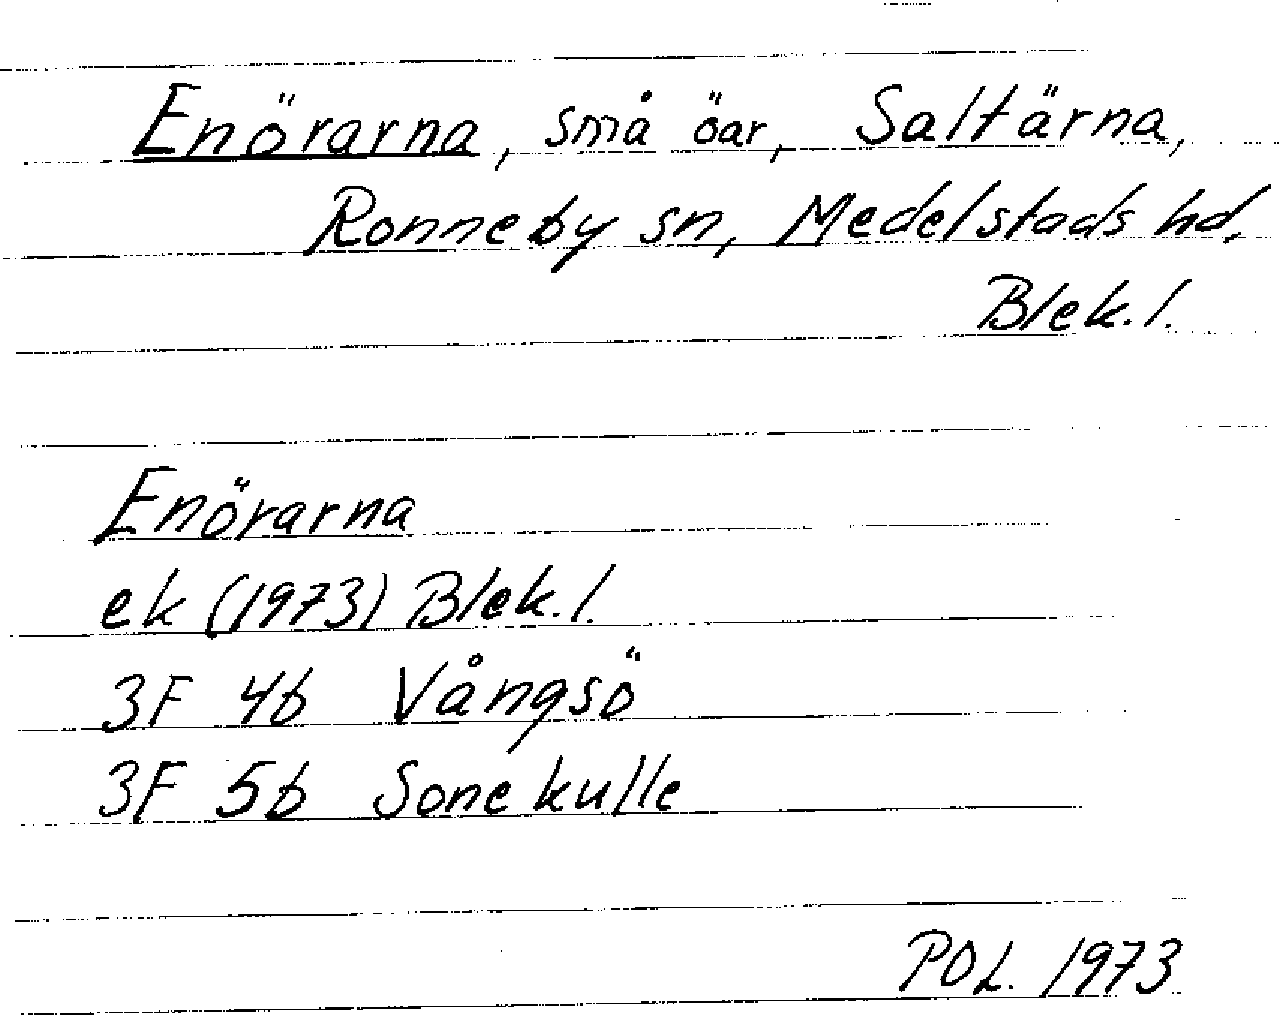 Enörarna, små öar, Saltärna,
Ronneby sn, Medelstads hd,
Blek. l.
Enörarna
ek (1973) Blek. l.
3F 4b Vångsö
3F 5b Sonekulle
POL. 1973